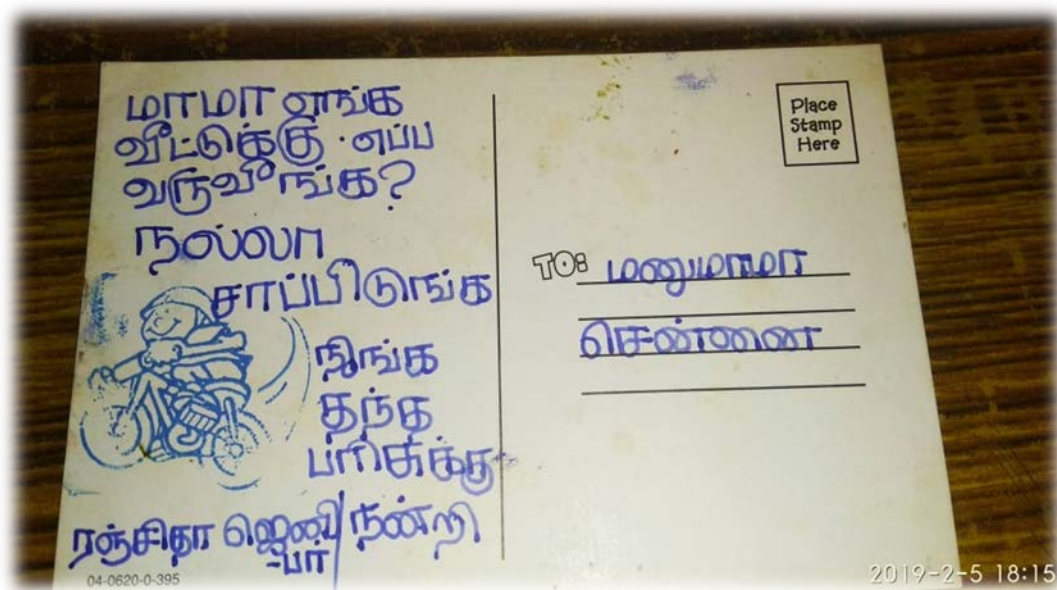 மாமா எங்க
வீட்டுக்கு எப்ப
வருவீங்க?
நல்லா
சாப்பிடுங்க
நீங்க
தந்த
பரிசுக்கு
நன்றி
ரஞ்சிதா ஜெனி
-பர்
04-0620-0-395
Place
Stamp
Here
TO: மனுமாமா
சென்னை
2019-2-5 18:15